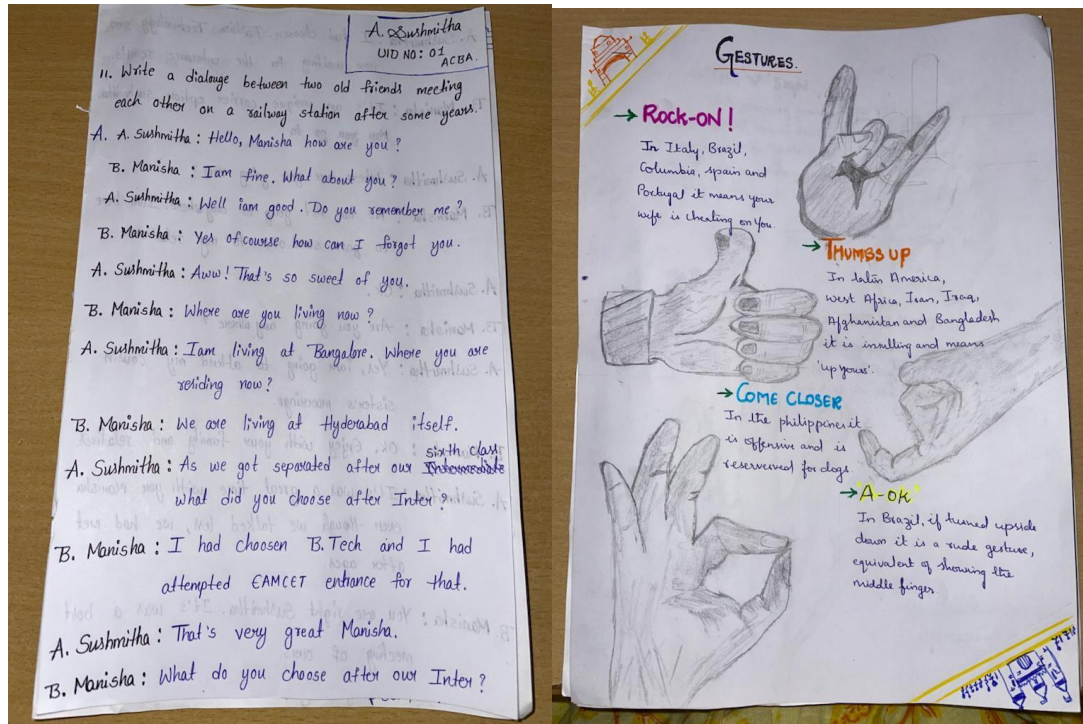 A. Sushmitha
UID NO: 01
ACBA.
11. Write a dialouge between two old friends meeting
each other on a railway station after some years.
A. A. Sushmitha : Hello, Manisha how are you ?
B. Manisha : Iam fine. What about you ?
A. Sushmitha : Well iam good. Do you remember me ?
B. Manisha : Yes ofcourse how can I forgot you.
A. Sushmitha : Aww ! That's so sweet of you.
B. Manisha : Where are you living now ?
A. Sushmitha : Iam living at Bangalore. Where you are
residing now ?
B. Manisha : We are living at Hyderabad itself.
sixth class
A. Sushmitha : As we got separated after our Intermediate
what did you choose after Inter ?
B. Manisha : I had choosen B.Tech and I had
attempted EAMCET entrance for that.
A. Sushmitha : That's very great Manisha.
B. Manisha : What do you choose after our Inter ?
GESTURES.
→ ROCK-ON !
In Italy, Brazil,
Columbia, spain and
Portugal it means your
wife is cheating on You.
→ THUMBS UP
In latin America,
west Africa, Iran, Iraq,
Afghanistan and Bangladesh
it is insulting and means
'up yours'.
→ COME CLOSER
In the philippines it
is offensive and is
reserveved for dogs.
→ "A-OK"
In Brazil, if turned upside
down it is a rude gesture,
equivalent of showing the
middle finger.